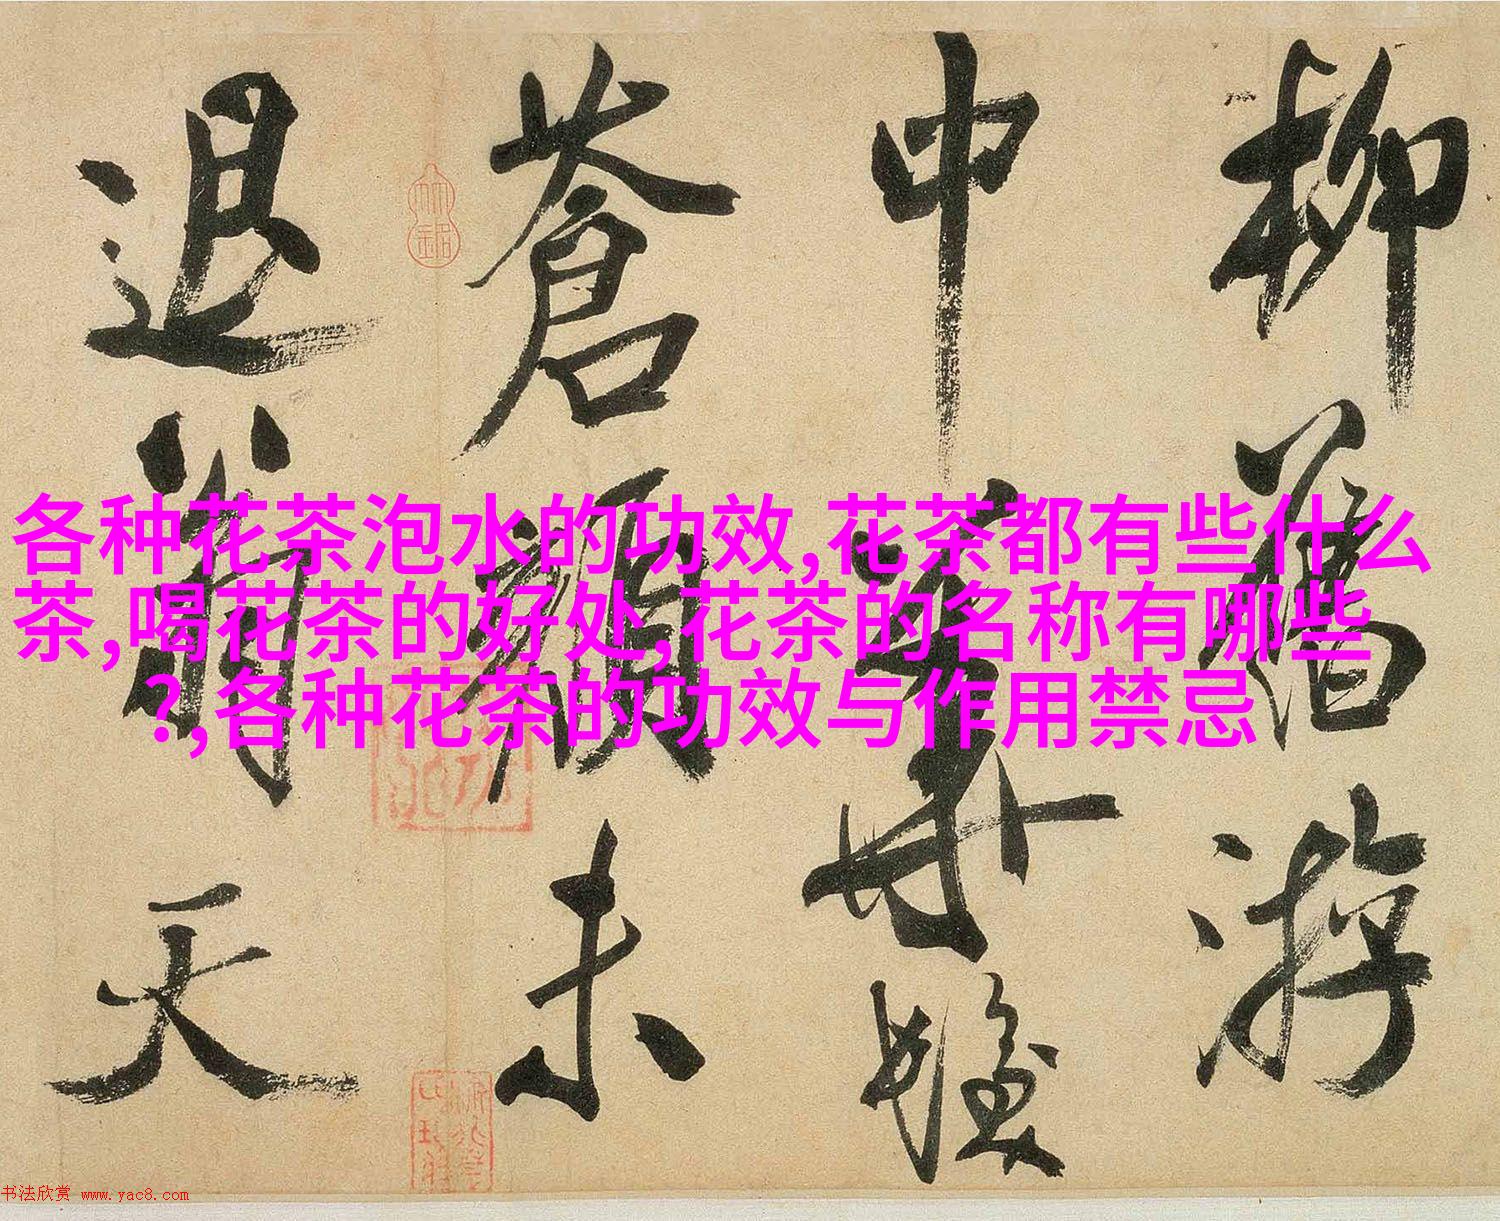 各种花茶泡水的功效,花茶都有些什么
茶,喝花茶的好处,花茶的名称有哪些
?,各种花茶的功效与作用禁忌
柳舊游
中
蒼顏未
退翁天
书法欣赏 www.yac8.com